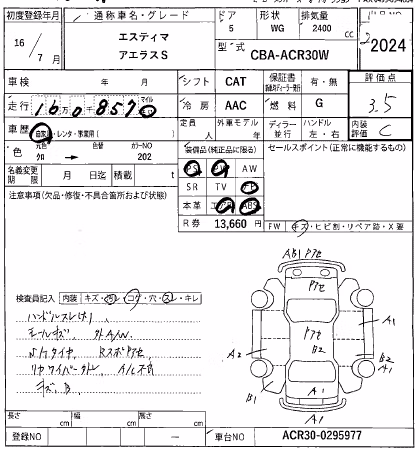 初度登録年月 通称車名・グレード ドア 形状 排気量 出品NO
16 / 7 月 エスティマ 5 WG 2400 cc 2024
アエラスS
型式 CBA-ACR30W
車検 年 月 シフト CAT 保証書 有・無 評価点
走行 16万0857 マイル 冷房 AAC 燃料 G 3.5
車歴 自家用・レンタ・事業用( ) 定員 人 外車モデル 年 ディーラー 並行 ハンドル 左・右 内装評価 C
色 元色 クロ → 色替 カラーNO 202 装備品(純正品に限る) セールスポイント(正常に機能するもの)
名義変更期限 月 日迄 積載 t PS PW AW
注意事項(欠品・修復・不具合箇所および状態) SR TV
本革 エアB ABS
R券 13,660 円 FW キズ・ヒビ割・リペア跡・X要
AB1 Pアセ
Pアセ
検査員記入 内装 キズ・汚レ・コゲ・穴・スレ・キレ
ハンドルスレ
モールキズ 外A/W
Pアセ
B2
A1
A2
A2
A1
リヤワイパー A/C不良
キズ、B
B1
A1
A1
長さ cm 幅 cm 高さ cm
登録NO ― 車台NO ACR30-0295977